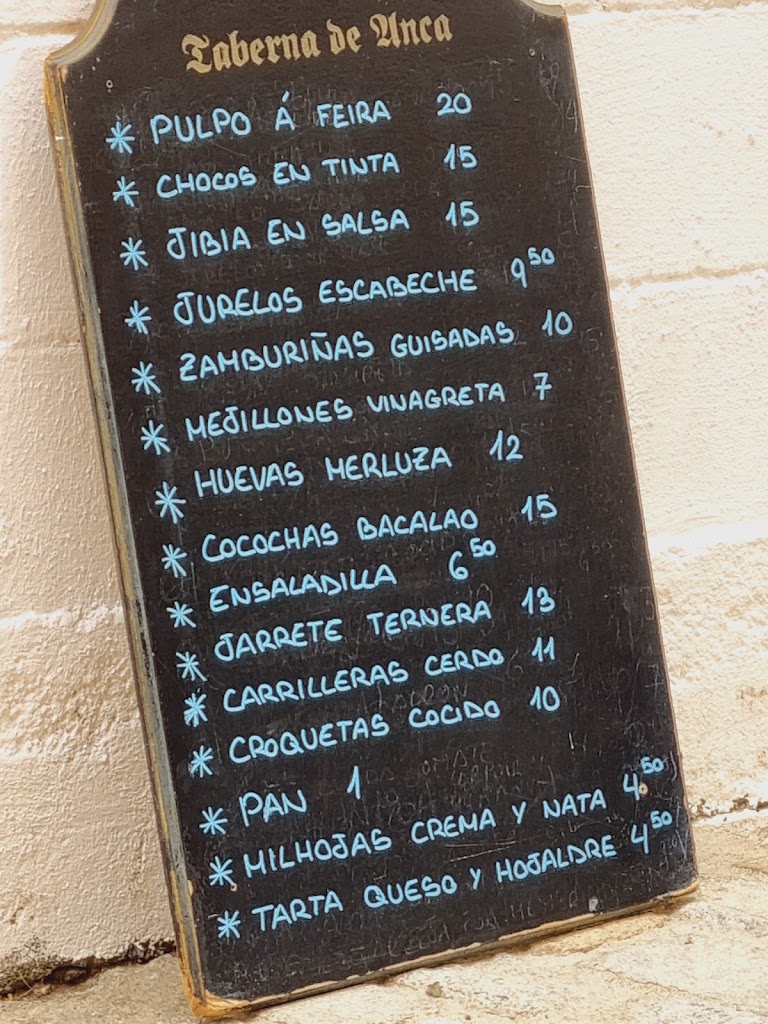 Taberna de Anca
* PULPO Á FEIRA 20
* CHOCOS EN TINTA 15
* JIBIA EN SALSA 15
* JURELOS ESCABECHE 9 50
* ZAMBURIÑAS GUISADAS 10
* MEJILLONES VINAGRETA 7
* HUEVAS MERLUZA 12
* COCOCHAS BACALAO 15
* ENSALADILLA 6 50
* JARRETE TERNERA 13
* CARRILLERAS CERDO 11
* CROQUETAS COCIDO 10
* PAN 1
* MILHOJAS CREMA Y NATA 4 50
* TARTA QUESO Y HOJALDRE 4 50